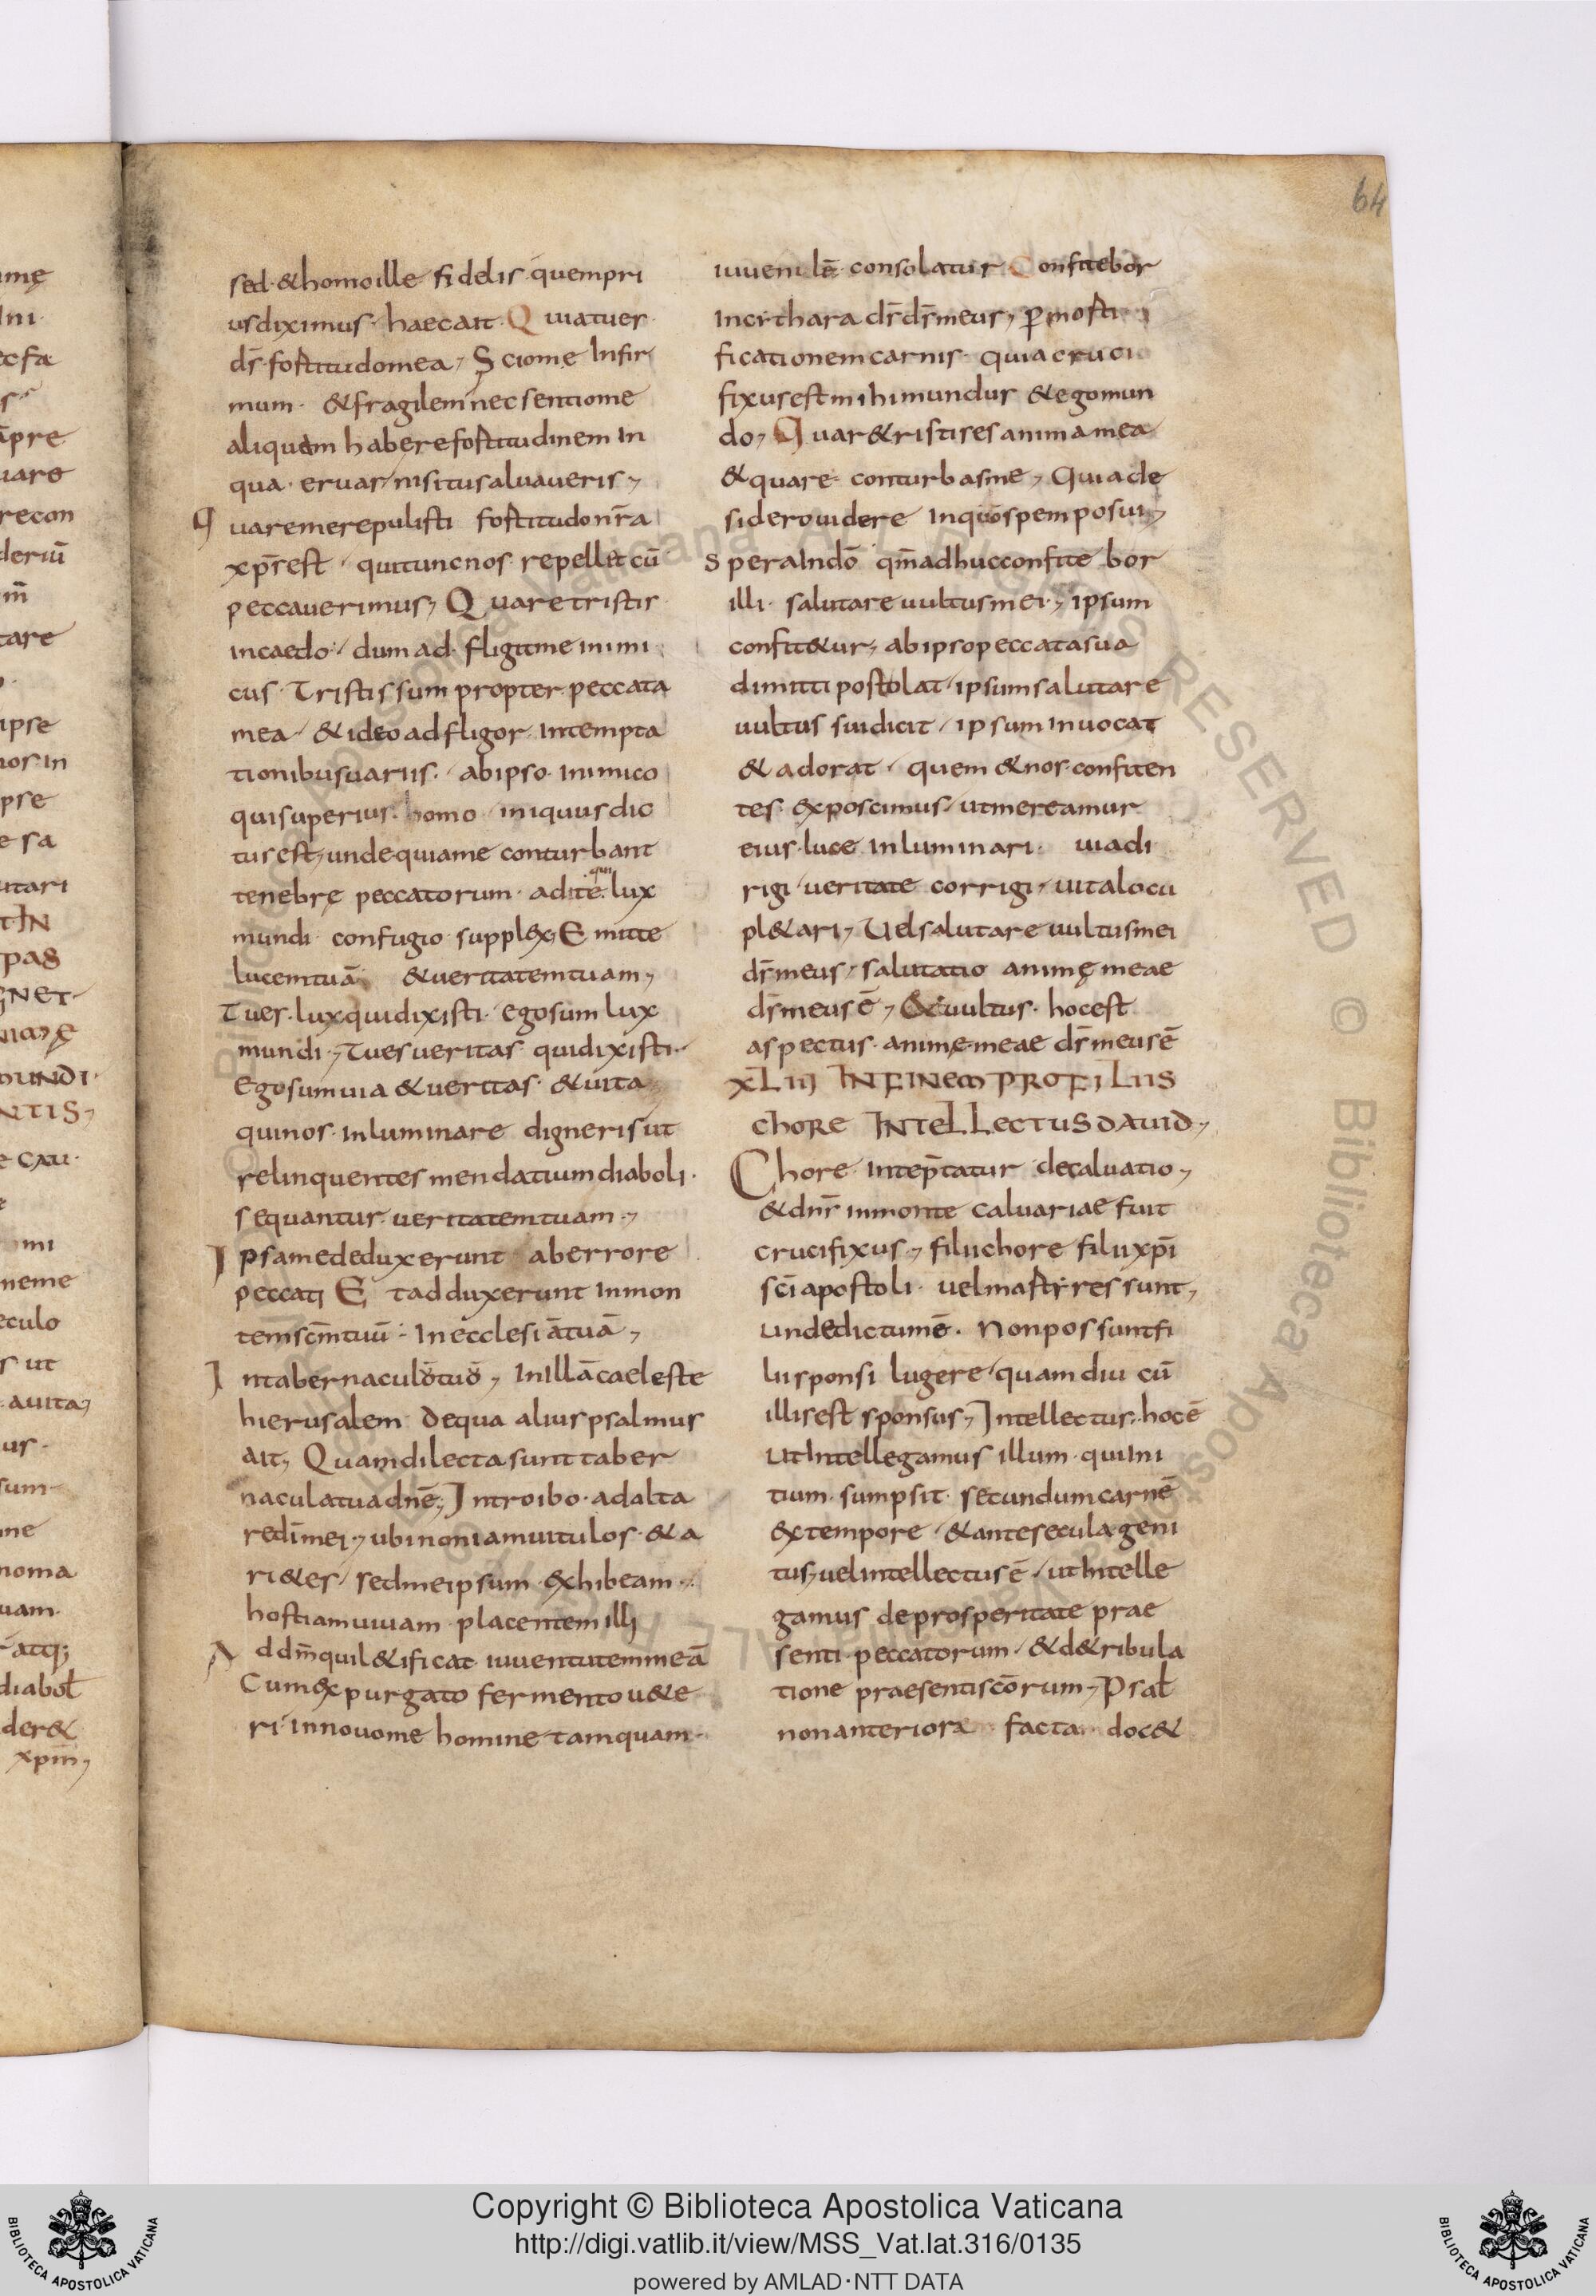 64
sed · & homo ille fidelis quem pri
us diximus · haec ait · Q uia tu er
d̄s fortitudo mea, S cio me Infir
mum · & fragilem nec sentio me
aliquam habere fortitudinem In
qua · eruar nisi tu salvaveris,
Q uare me repulisti fortitudo nr̄a
xpr̄ est qui tunc nos repellit cū
peccaverimus, Q uare tristis
incaedo · dum adfligit me inimi
cus · Tristis sum propter peccata
mea · & ideo adfligor · Intempta
tionibus variis · ab ipso inimico
qui superius homo iniquus dic
tus est, unde quia me conturbant
tenebrę peccatorum · ad te qui lux
mundi confugio supplex, E mitte
lucem tuā & veritatem tuam,
Tu es lux qui dixisti · ego sum lux
mundi, Tu es veritas qui dixisti ·
Ego sum via & veritas & vita
qui nos inluminare digneris ut
relinquentes mendatium diaboli ·
sequantur veritatem tuam,
I psa me deduxerunt ab errore
peccati E t adduxerunt in mon
tem sc̄m tuū · In ecclesiā tuā,
I n tabernaculo tuo, In illā caeleste
hierusalem de qua alius psalmus
ait, Quam dilecta sunt taber
nacula tua dn̄e, Introibo · ad alta
re dī mei, ubi non iam vitulos & a
ri&es / sed meipsum exhibeam
hostiam vivam placentem illi
A d dm̄ qui l&ificat iuventutem meā
Cum expurgato fermento v&e
ri Innovo me homine tamquam
iuvenilē consolatur · Confitebor
In cithara d̄s d̄s meus, p mortі
ficationem carnis · quia cruci
fixus est mihi mundus & ego mun
do, Quar& ristis es anima mea
& quare conturbas me, Quia de
sidero videre In quo spem posui,
S pera In dō qm̄ adhuc confitebor
illi salutare vultus mei, ipsum
confit&ur, ab ipso peccata sua
dimitti postolat / ipsum salutare
vultus sui dicit / ipsum Invocat
& adorat · quem & nos confiten
tes exposcimus / ut mereamur
eius luce Inluminari · via di
rigi / veritate corrigi / vita locu
pl&ari, Vel salutare vultus mei
d̄s meus / salutatio animę meae
d̄s meus ē, & vultus · hoc est
aspectus · animę meae d̄s meus ē
XLIII IN FINEM PRO FILIIS
CHORE INTELLECTUS DAVID,
Chore Intep̄tatur decalvatio,
& dn̄r in monte calvariae fuit
crucifixus, filii chore filii xp̄i
sc̄i apostoli · vel martyres sunt,
unde dictum ē · Non possunt fi
lii sponsi lugere / quamdiu cū
illis est sponsus, Intellectus · hoc ē
ut Intellegamus illum · qui Ini
tium · sumpsit secundum carnē
ex tempore / & ante secula geni
tus, vel intellectus ē / ut Intelle
gamus de prosperitate prae
senti peccatorum / & de tribula
tione praesenti sc̄orum, Psal
non anteriora facta doc&
Copyright © Biblioteca Apostolica Vaticana
http://digi.vatlib.it/view/MSS_Vat.lat.316/0135
powered by AMLAD·NTT DATA
BIBLIOTECA APOSTOLICA VATICANA
BIBLIOTECA APOSTOLICA VATICANA